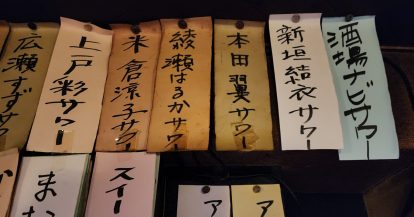 酒場ナビサワー
新垣結衣サワー
本田翼サワー
綾瀬はるかサワー
米倉涼子サワー
上戸彩サワー
広瀬すずサワー
ア
ア
スイー
まな